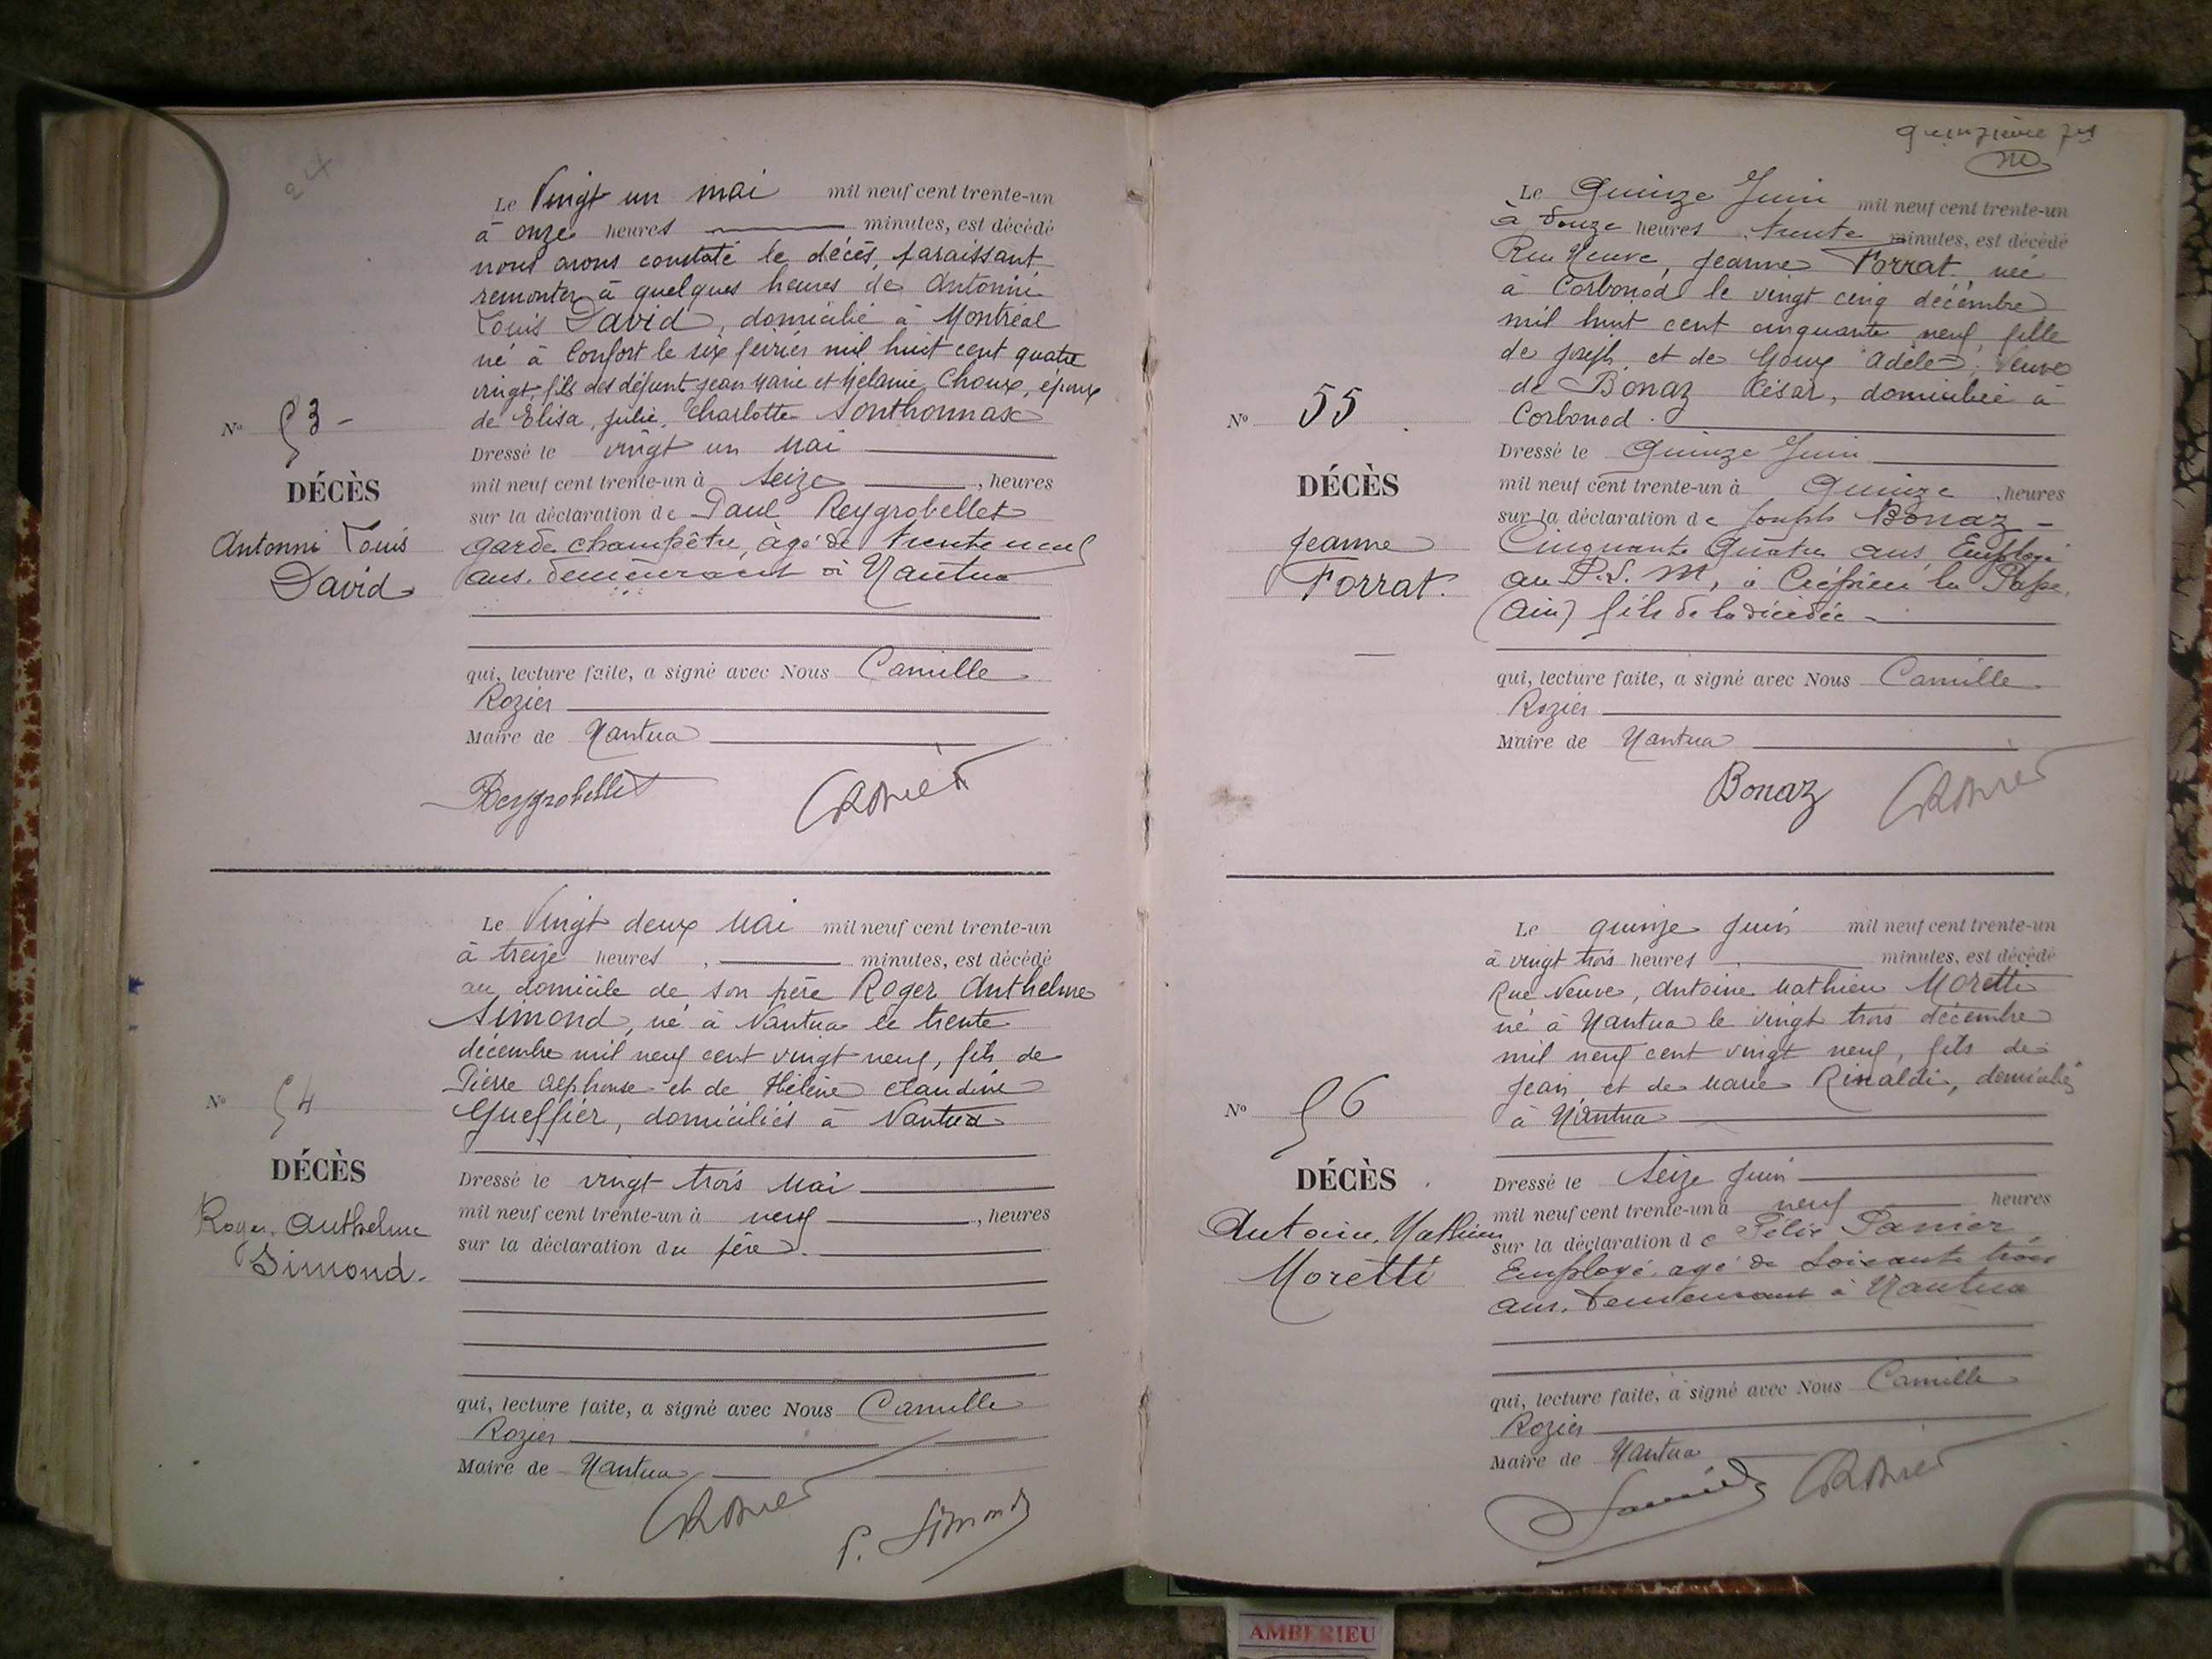 Le Vingt un mai mil neuf cent trente-un
à onze heures minutes, est décédé
nous avons constaté le décès, paraissant
remonter à quelques heures de Antonni
Louis David, domicilié à Montréal
né à Confort le six février mil huit cent quatre
vingt, fils des défunt Jean Marie et Mélanie Choux, époux
de Elisa, Julie, Charlotte Sonthonnax
N° 53 -
DÉCÈS
Antonni Louis
David
Dressé le vingt un Mai
mil neuf cent trente-un à Seize, heures
sur la déclaration de Paul Reygrobellet
garde champêtre, âgé de trente neuf
ans. demeurant à Nantua
qui, lecture faite, a signé avec Nous Camille
Rozier
Maire de Nantua
Reygrobellet
Le Vingt deux Mai mil neuf cent trente-un
à treize heures, minutes, est décédé
au domicile de son père Roger Anthelme
Simond, né à Nantua le trente
décembre mil neuf cent vingt neuf, fils de
Pierre Alphonse et de Hélène Claudine
Gueffier, domiciliés à Nantua
N° 54
DÉCÈS
Roger, Anthelme
Simond.
Dressé le vingt trois Mai
mil neuf cent trente-un à neuf, heures
sur la déclaration du père.
qui, lecture faite, a signé avec Nous Camille
Rozier
Maire de Nantua
P. Simond
quinzième
Le Quinze Juin mil neuf cent trente-un
à douze heures trente minutes, est décédé
Rue Neuve, Jeanne Forrat née
à Corbonod le vingt cinq décembre
mil huit cent cinquante neuf, fille
de Joseph et de Gouy Adèle, Veuve
de Bonaz César, domiciliée à
Corbonod.
N° 55
DÉCÈS
Jeanne
Forrat.
Dressé le Quinze Juin
mil neuf cent trente-un à Quinze, heures
sur la déclaration de Joseph Bonaz -
Cinquante Quatre ans Employé
au P.L.M, à Crépieu la Pape,
(Ain) fils de la décédée -
qui, lecture faite, a signé avec Nous Camille
Rozier
Maire de Nantua
Bonaz
Le quinze Juin mil neuf cent trente-un
à vingt trois heures minutes, est décédé
Rue Neuve, Antoine Mathieu Moretti
né à Nantua le vingt trois décembre
mil neuf cent vingt neuf, fils de
Jean et de Marie Rinaldi, domiciliés
à Nantua
N° 56
DÉCÈS
Antoine, Mathieu
Moretti
Dressé le Seize Juin
mil neuf cent trente-un à neuf heures
sur la déclaration de Félix Panier
Employé, agé de Soixante trois
ans, demeurant à Nantua
qui, lecture faite, a signé avec Nous Camille
Rozier
Maire de Nantua
AMBERIEU